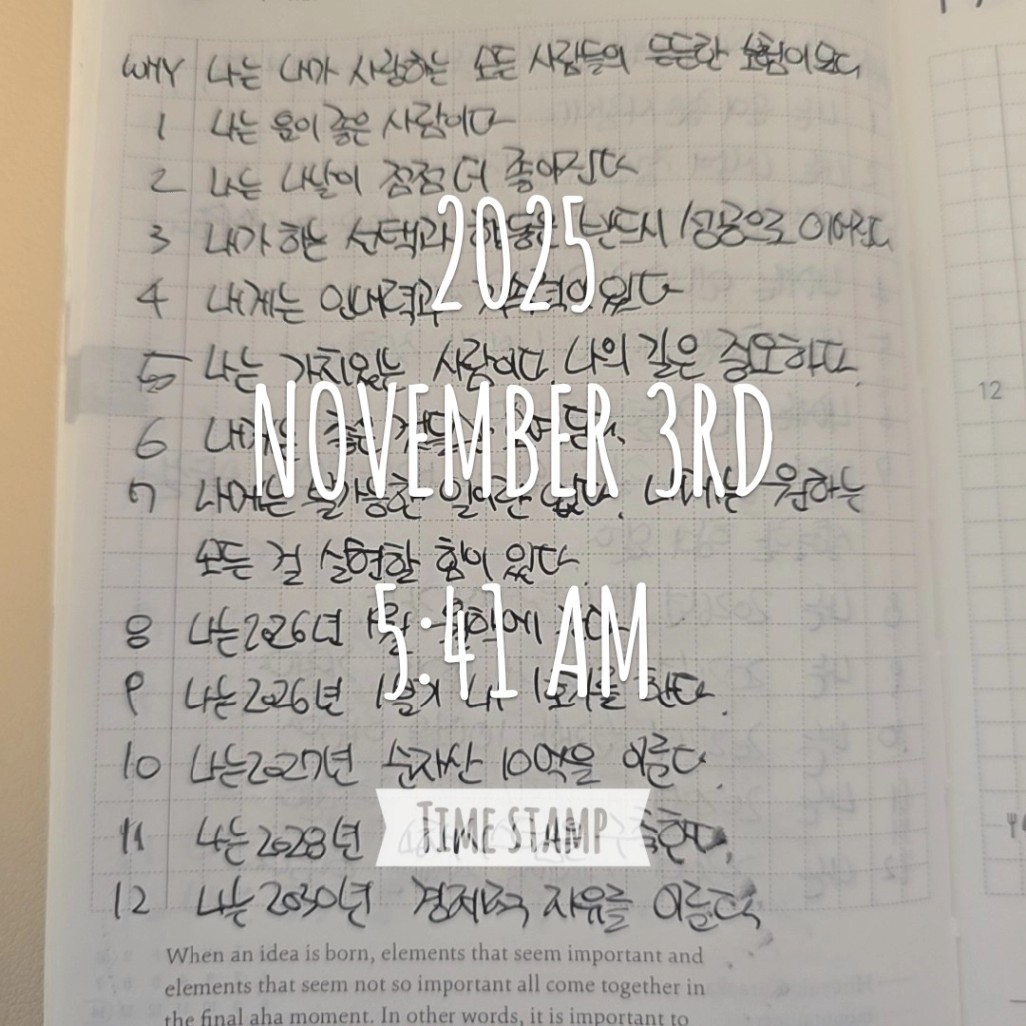 WHY 나는 내가 사랑하는 모든 사람들의 든든한 보험이 된다
1 나는 운이 좋은 사람이다
2 나는 나날이 점점 더 좋아진다
3 내가 하는 선택과 행동은 반드시 성공으로 이어진다
4 내게는 인내력과 지속력이 있다
5 나는 가치있는 사람이다. 나의 길은 중요하다.
6
7 나에게는 불가능한 일이란 없다. 나에게는 원하는
모든 걸 실현할 힘이 있다.
8 나는 2026년
9 나는 2026년 1분기 내 한다.
10 나는 2027년 순자산 10억을 이룬다.
11 나는 2028년
12 나는 2030년 경제적 자유를 이룬다
2025
NOVEMBER 3RD
5:41 AM
TIME STAMP
When an idea is born, elements that seem important and
elements that seem not so important all come together in
the final aha moment. In other words, it is important to
12